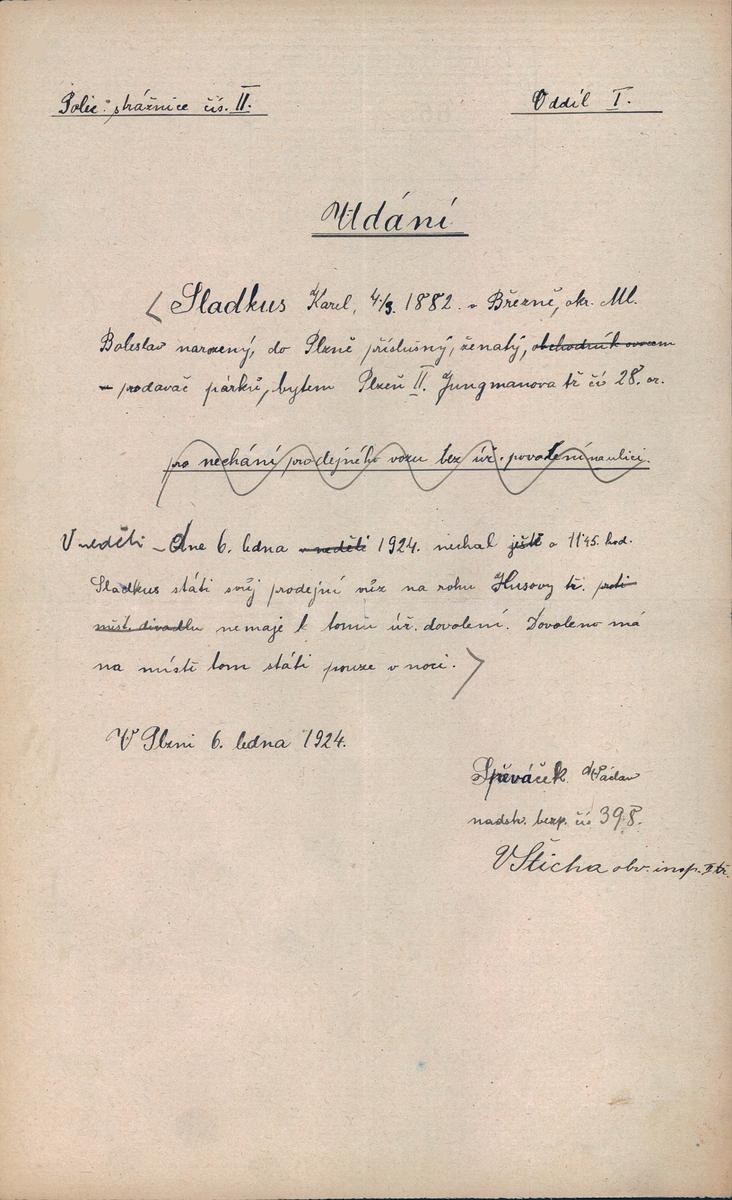 Polic. strážnice čís. II.
Oddíl I.
Udání
Sladkus Karel, 4/3. 1882 v Březně, okr. Ml.
Boleslav narozený, do Plzně příslušný, ženatý, obchodník ovocem
– prodavač párků, bytem Plzeň II. Jungmanova tř čís 28. or.
pro nechání prodejného vozu bez úř. povolení na ulici.
V neděli – Dne 6. ledna v neděli 1924. nechal ještě o 11'45. hod.
Sladkus státi svůj prodejní vůz na rohu Husovy tř. proti
měst. divadlu nemaje k tomu úř. dovolení. Dovoleno má
na místě tom státi pouze v noci.
V Plzni 6. ledna 1924.
Spěváček Václav
nadstr. bezp. čís 398.
VŠticha obv. insp. II tř.